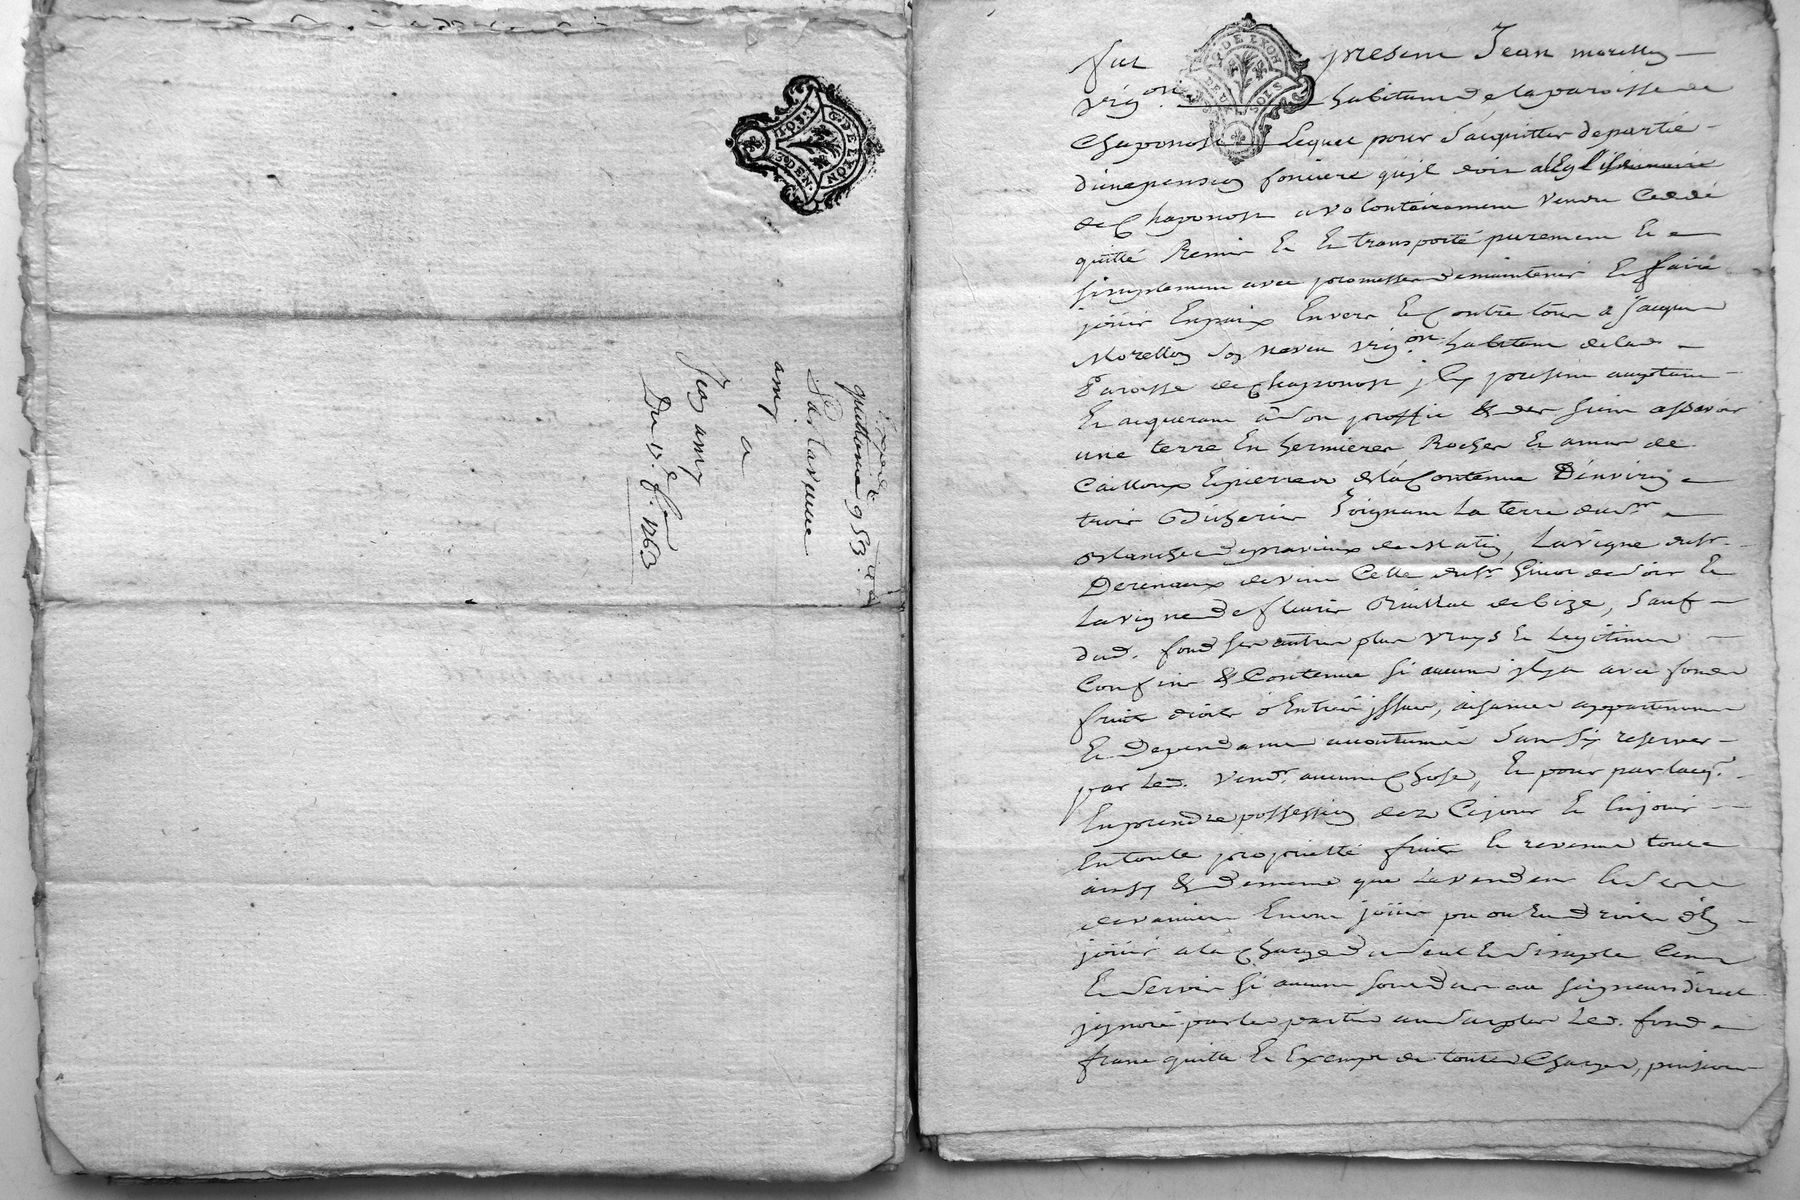 G. DE LYON
quittance 953
Par la veuve
amy
a
Jean amy
Du 17e 1763
G. DE LYON
DEUX SOLS
fut present Jean morellon
vigon habitant de la paroisse de
Chaponost Lequel pour s'acquitter de partie
d'une pension fonciere qu'il doit
de Chaponost a volontairement vendu Ceddé
quitté Remis Et Et transporté purement Et
simplement avec promesse de maintenir Et faire
joüir En paix Envers Et Contre tous à Jacques
Morellon son neveu vigon habitant de lad.
Paroisse de Chaponost icy present acceptant
Et acquerant à son proffit & des siens assavoir
une terre En hermieres Rocher Et amas de
Cailloux Et pierres de la Contenue D'environ
trois Bicherées Joignant La terre dud. sr
La vigne du sr
Celle du sr Et
La vigne de fleurie de bize, Sauf
dud. fond ses autres plus vrays Et Legitimes
Confins & Contenue si aucuns il y a avec fonds
fruits droits d'Entrées issues, aisances appartenances
Et dependances accoutumées sans s'y reserver
par Led. vendr. aucune Chose, Et pour par l'acqr.
En prendre possession dez Ce jour Et En jouir
En toute proprietté fruits Et revenus tout
ainsy & de meme que Le vendeur Et ses
devanciers En ont joüis pu ou Eu droit d'En
joüir a la Charge du seul Et simple Cens
Et servis si aucuns sont dus au seigneur direct
ignoré par les parties au surplus Led. fond
franc quitte Et Exempt de toutes Charges, pensions